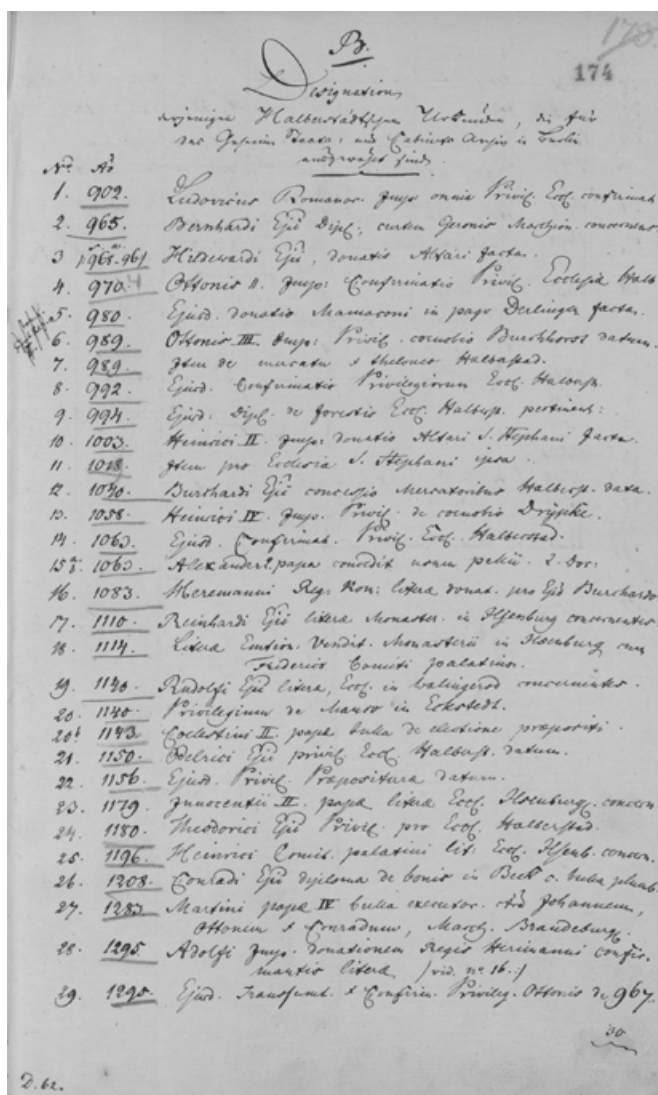 178.
174
B.
Designation
derjenigen Halberstädtschen Urkunden, die für
das Geheime Staats- und Cabinets Archiv in Berlin
ausgewählt sind.
No. Ao
1. 902. Ludovicus Romanor. Imp. omnia Privil. Eccl. confirmat
2. 965. Bernhardi Epi Dipl. curtem Geronis Marchion. concernens
3 968. 961 Hildewardi Epi, donatio Altari facta.
4. 970. Ottonis II. Imp. Confirmatio Privil. Ecclesiæ Halb
5. 980. Ejusd. donatio Mamaconi in pago Derlinger facta.
6. 989. Ottonis III. Imp. Privil. coenobio Burchhorst datum.
7. 989. Item de mercatu & theloneo Halbstad.
8. 992. Ejusd. Confirmatio Privilegiorum Eccl. Halberst.
9. 994. Ejusd. Dipl. de forestis Eccl. Halberst. pertinent:
10. 1003. Heinrici II. Imp. donatio Altari S. Stephani facta.
11. 1018. Item pro Ecclesia S. Stephani ipsa.
12. 1040. Burchardi Epi concessio Mercatoribus Halberst. data.
13. 1058. Heinrici IV. Imp. Privil. de coenobio Drypke.
14. 1063. Ejusd. Confirmat. Privil. Eccl. Halberstad.
15 1063. Alexander 2. papa concedit usum pallii. 2. Doc:
16. 1083. Heremanni Reg: Rom: litera donat. pro Epo Burchardo
17. 1110. Reinhardi Epi litera Monaster. in Ilsenburg concernentes
18. 1114. Litera Emtion. Vendit. Monasterii in Ilsenburg cum
Frederico Comiti palatino.
19. 1140. Rudolfi Epi litera, Eccl. in Walingerod concernentes.
20. 1140. Privilegium de Manso in Eckstedt.
20b 1143. Coelestini II. papæ bulla de electione præpositi.
21. 1150. Odelrici Epi privil. Eccl. Halberst. datum.
22. 1156. Ejusd. Privil. Præpositura datum.
23. 1179. Innocentii II. papæ litera Eccl. Ilsenburg. concern
24. 1180. Theodorici Epi Privil. pro Eccl. Halberstad.
25. 1196. Heinrici Comit. palatini lit: Eccl. Ilsenb. concern.
26. 1208. Conradi Epi diploma de bonis in Beck c. bulla plumb.
27. 1283 Martini papæ IV bulla executor. ctra Johannem,
Ottonem & Conradum, March. Brandeburg.
28. 1295. Adolfi Imp. donationem Regis Herimanni confir-
mantis litera (vid. no. 16.)
29. 1295. Ejusd. Transsumt. & Confirm. Privileg. Ottonis de 967.
30
D. 62.